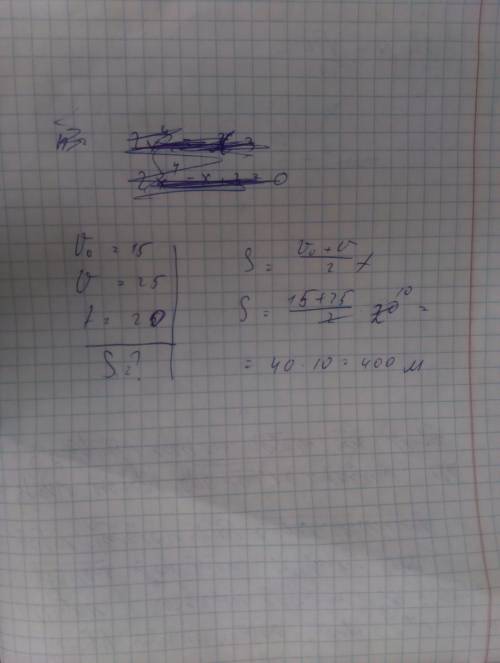 V₀ = 15
V = 25
t = 20
S = ?
S = (V₀ + V)/2 t
S = (15+25)/2 20 10 =
= 40 · 10 = 400 м